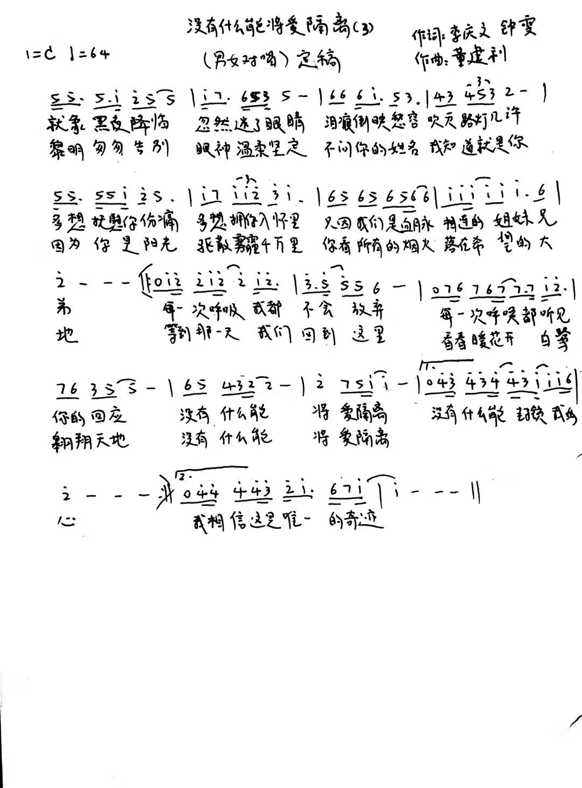 没有什么能将爱隔离(3)
(男女对唱) 定稿
作词:李庆文 钟雯
作曲:董建利
1=C ♩=64
5 5. 5. i 2 5 5 | i 7. 6 5 3 5 - | 6 6 6 i. 5 3. | 4 3 4 5 3 2 - |
就象 黑夜降临 忽然迷了眼睛 泪痕倒映愁容 吹灭路灯几许
黎明匆匆告别 眼神温柔坚定 不问你的姓名 我知道就是你
5 5. 5 5 i 2 5. | i 7 i i 2 3 i. | 6 5 6 5 6 5 6 6 | i i i i i i. 6 |
多想抚慰你伤痛 多想拥你入怀里 只因我们是血脉 相连的 姐妹兄
因为 你是阳光 驱散雾霾千万里 你看所有的烟火 落在希望的大
2 - - - 0 i 2 2 i 2 2 i 2. | 3. 5 5 5 6 - | 0 7 6 7 6 7 7. 7 i 2. |
弟 每一次呼吸 我都 不会 放弃 每一次呼唤都听见
地 等到那一天 我们 回到 这里 看看暖花开 白鸽
7 6 3 5 5 - | 6 5 4 3 2 2 - | 2 7 5 i i - | 0 4 3 4 3 4 4 3 i i i 6 |
你的回应 没有 什么能 将 爱隔离 没有什么能 封锁 我的
翱翔天地 没有 什么能 将 爱隔离
2 - - - :|| 2. 0 4 4 4 4 3 2 i. 6 7 i | i - - - ||
心 我相信这是唯一 的奇迹